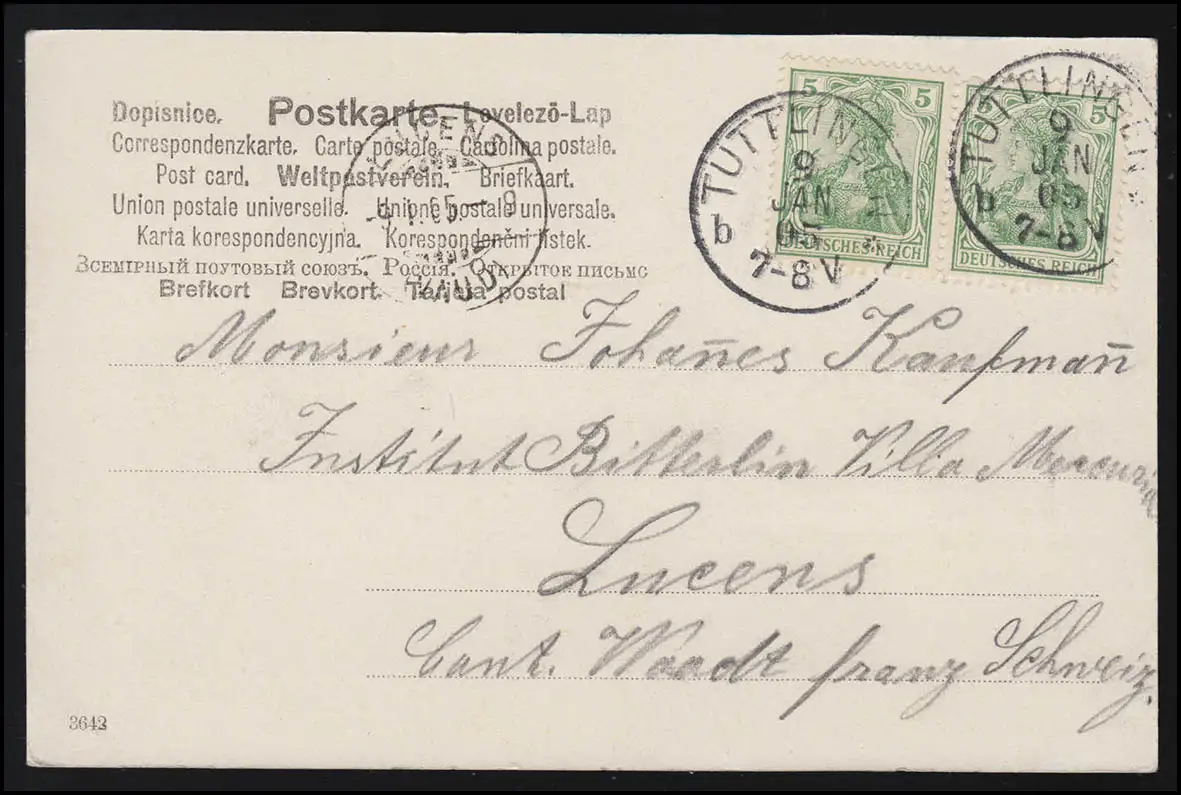 Dopisnice. Postkarte. Levelezō-Lap
Correspondenzkarte. Carte postale. Cartolina postale.
Post card. Weltpostverein. Briefkaart.
Union postale universelle. Unione postale universale.
Karta korespondencyjna. Korespondenční lístek.
Всемірный поутовый союзъ. Россія. Открыток письмо
Brefkort Brevkort. Tarjeta postal
LUCENS
VAUD
5 5
DEUTSCHES REICH
TUTTLINGEN
9
JAN
05
b
7-8V
5
DEUTSCHES REICH
TUTTLINGEN
9
JAN
05
b
7-8V
Monsieur Johan̄es Kaufman̄
Institut Bitterlin Villa Mercuria
Lucens
Cant. Waadt franz Schweiz.
3642